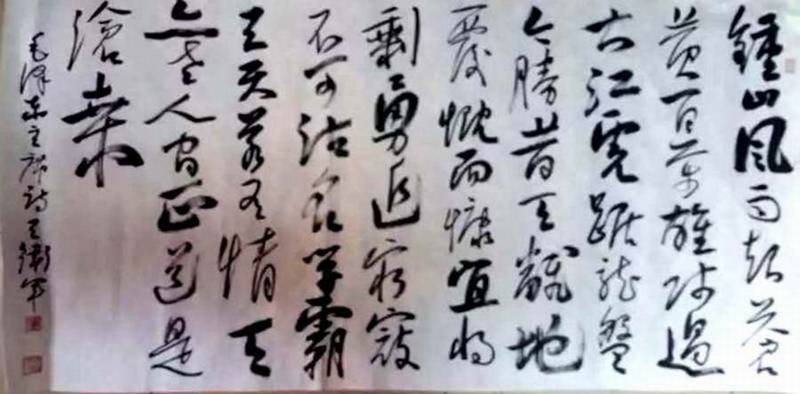 鍾山风雨起苍
黄百万雄师過
大江虎踞龙盤
今勝昔天翻地
覆慨而慷宜将
剩勇追穷寇
不可沽名学霸
王天若有情天
亦老人间正道是
滄桑
毛泽东主席诗王衛军